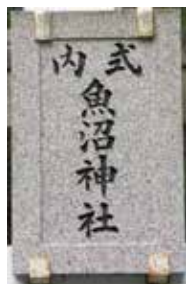 式内
魚沼神社